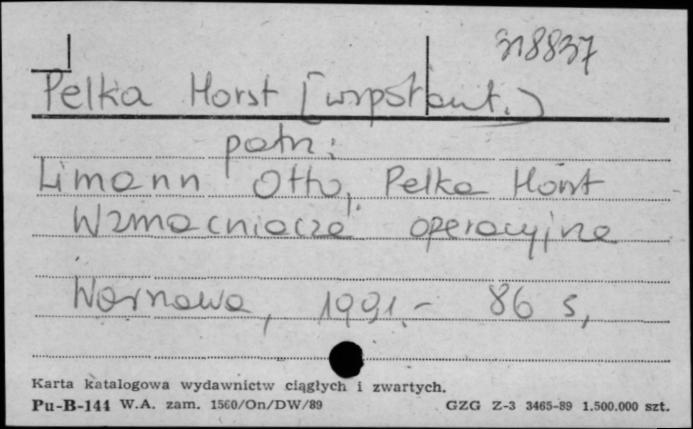 318837
Pelka Horst [współaut.)
patrz:
Limann Otto, Pelka Horst
Wzmacniacze operacyjne
Warszawa, 1991.- 86 s,
Karta katalogowa wydawnictw ciągłych i zwartych.
Pu-B-144 W.A. zam. 1560/On/DW/89 GZG Z-3 3465-89 1.500.000 szt.